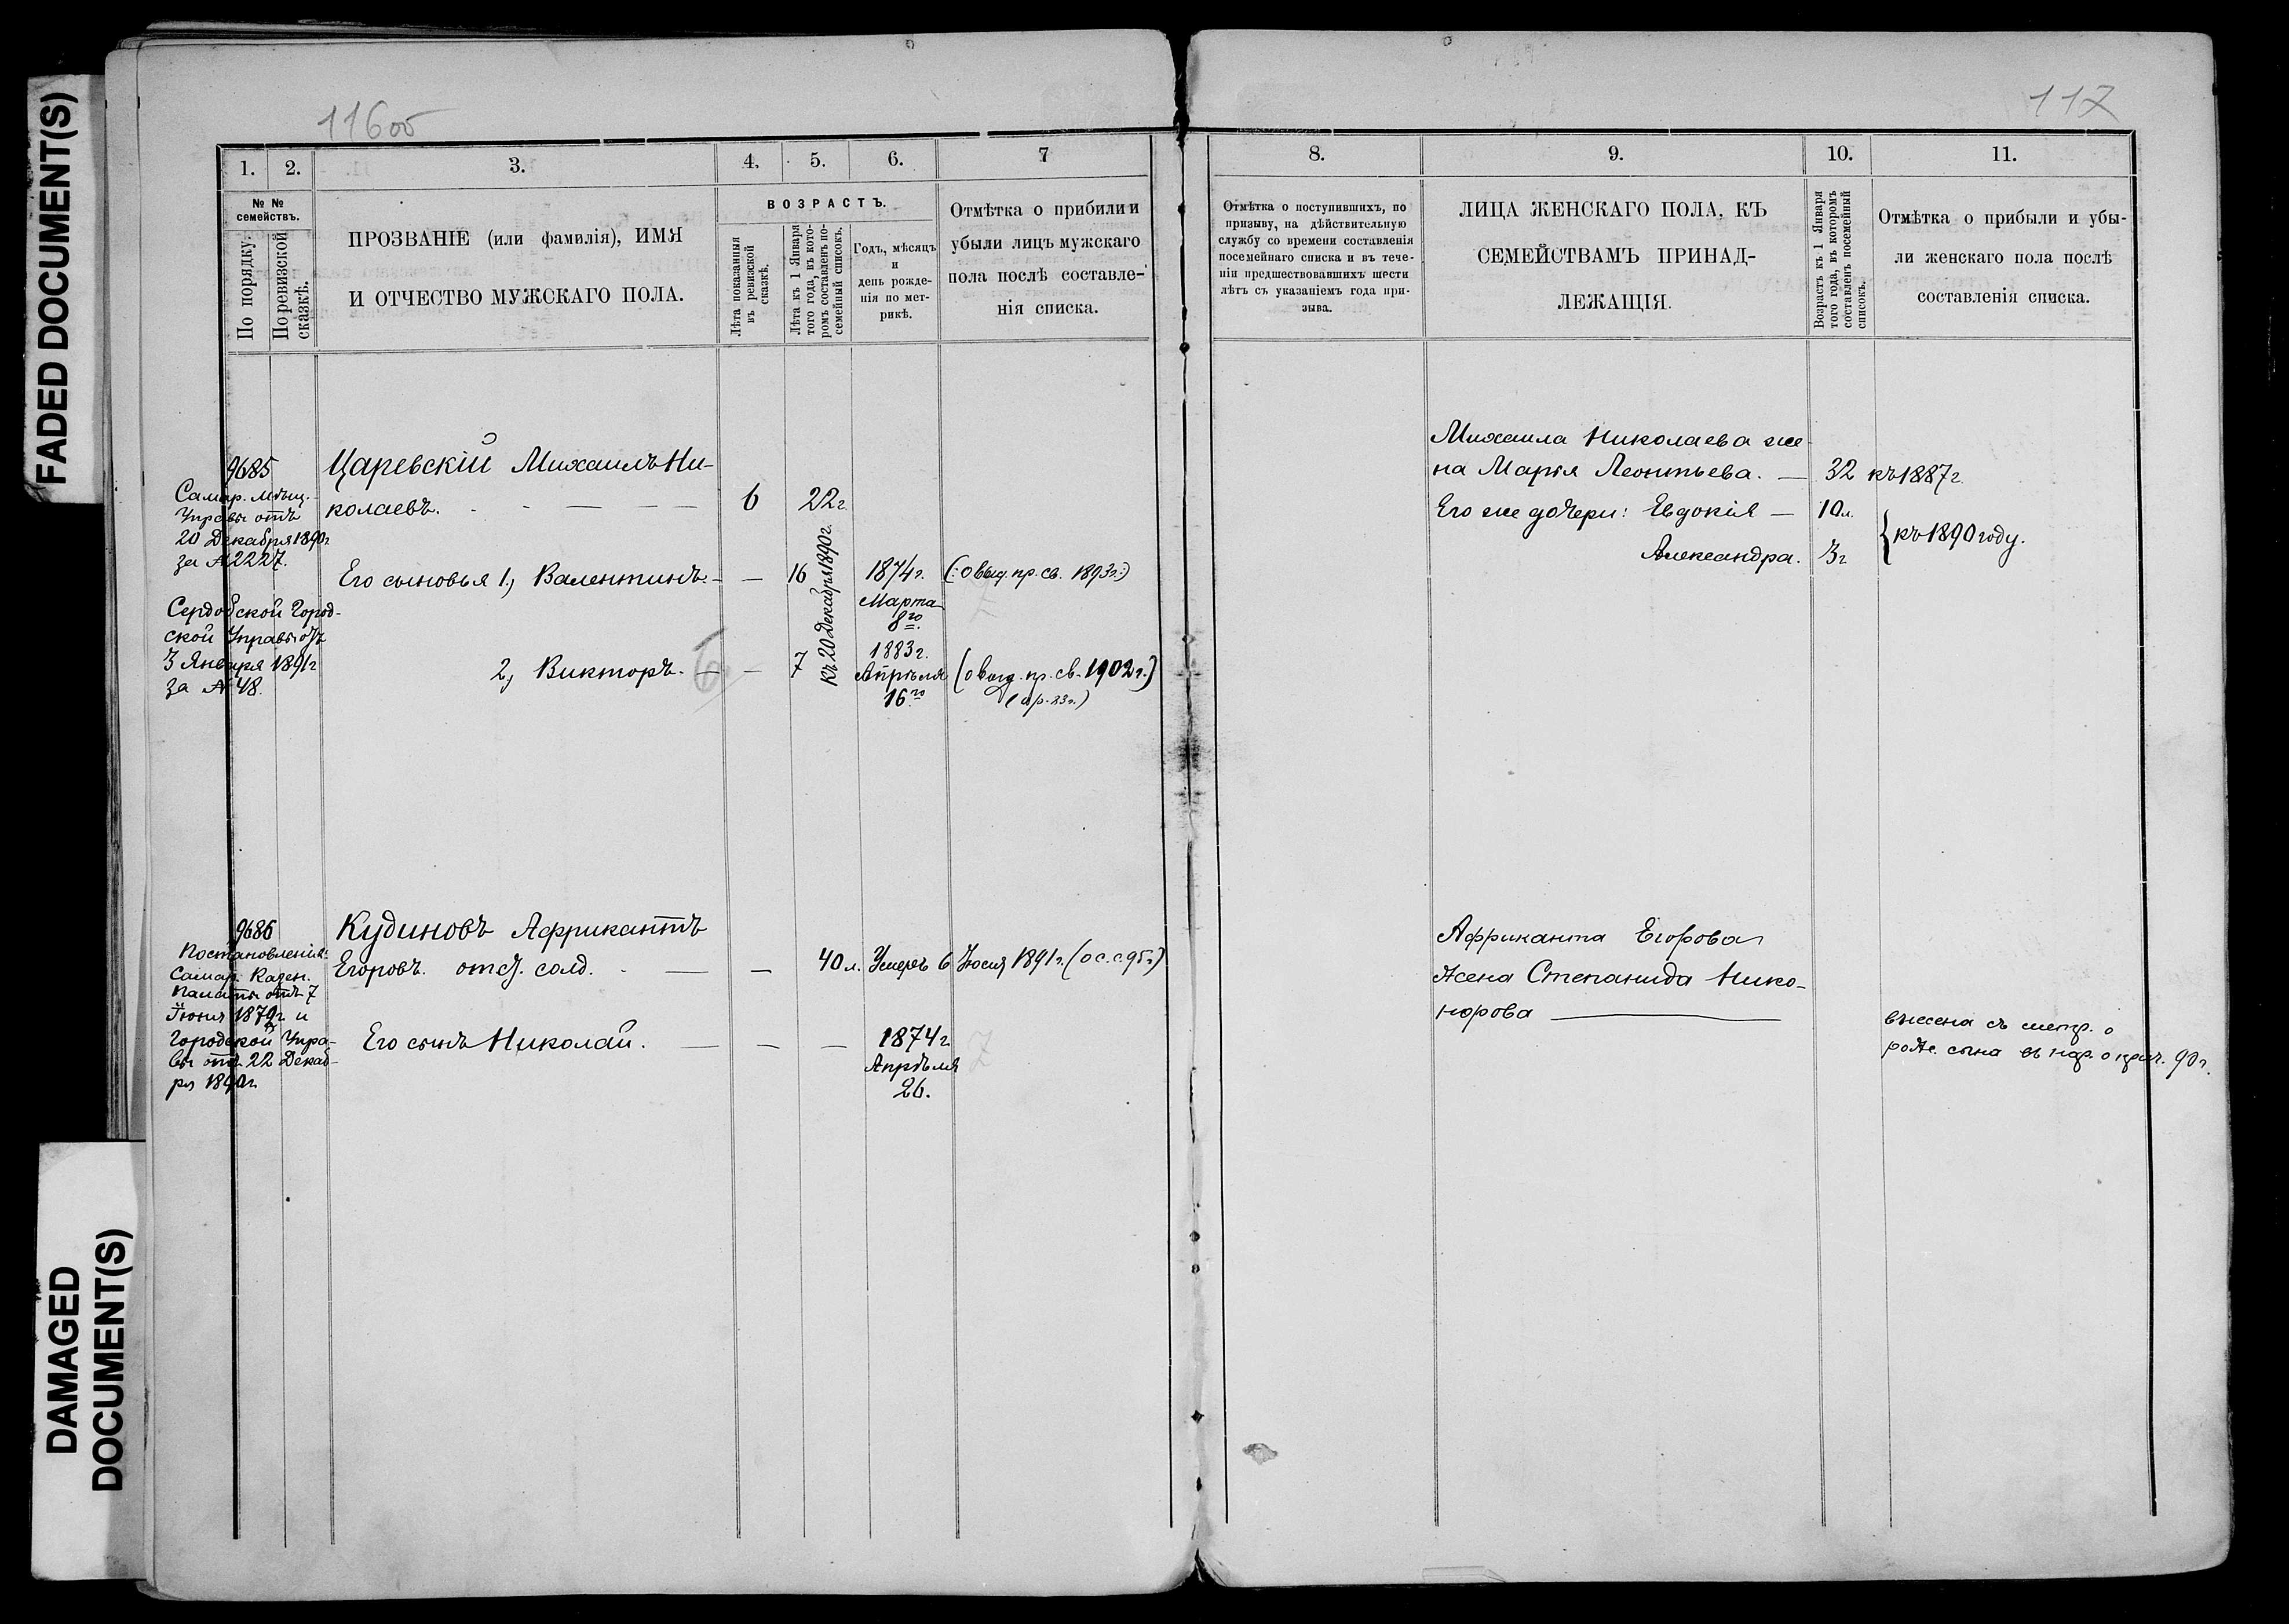 FADED DOCUMENT(S)
DAMAGED
DOCUMENT(S)
116об
1. 2. 3. 4. 5. 6. 7
№ №
семействъ.
По порядку.
По ревизской
сказкѣ.
ПРОЗВАНІЕ (или фамилія), ИМЯ
И ОТЧЕСТВО МУЖСКАГО ПОЛА.
ВОЗРАСТЪ.
Лѣта показанныя
въ ревизской
сказкѣ.
Лѣта къ 1 Января
того года, въ кото-
ромъ составленъ по-
семейный списокъ.
Годъ, мѣсяцъ
и
день рожде-
нія по мет-
рикѣ.
Отмѣтка о прибыли и
убыли лицъ мужскаго
пола послѣ составле-
нія списка.
9685
Самар. мѣщ.
Управы отъ
20 Декабря 1890г.
за №2227.
Сердобской Город-
ской Управы отъ
3 Января 1891г
за №48.
Царевскій Михаилъ Ни-
колаевъ. 6 22г.
Его сыновья 1, Валентинъ. — 16 1874г. (: о выд. пр. св. 1893г.:)
Марта
8го
къ 20 Декабря 1890г.
2, Викторъ. — 7 1883г.
Апрѣля (о выд. пр. св. 1902г.)
16го
9686
Постановленія:
Самар. Казен.
Палаты отъ 7
Іюня 1879г. и
Городской Упра-
вы отъ 22 Декаб-
ря 1890г.
Кудиновъ Африкантъ
Егоровъ. отст. солд. — 40 л. Умеръ 6 Іюля 1891г.
Его сынъ Николай. — — — 1874г
Апрѣля
26.
117
8. 9. 10. 11.
Отмѣтка о поступившихъ, по
призыву, на дѣйствительную
службу со времени составленія
посемейнаго списка и въ тече-
ніи предшествовавшихъ шести
лѣтъ съ указаніемъ года при-
зыва.
ЛИЦА ЖЕНСКАГО ПОЛА, КЪ
СЕМЕЙСТВАМЪ ПРИНАД-
ЛЕЖАЩІЯ.
Возрастъ къ 1 Января
того года, въ которомъ
составленъ посемейный
списокъ.
Отмѣтка о прибыли и убы-
ли женскаго пола послѣ
составленія списка.
Михаила Николаева же-
на Марія Леонтьева. — 32 къ 1887г.
Его же дочери: Евдокія — 10л.
{къ 1890 году.
Александра. 3г
Африканта Егорова
жена Степанида Нико-
норова
сына